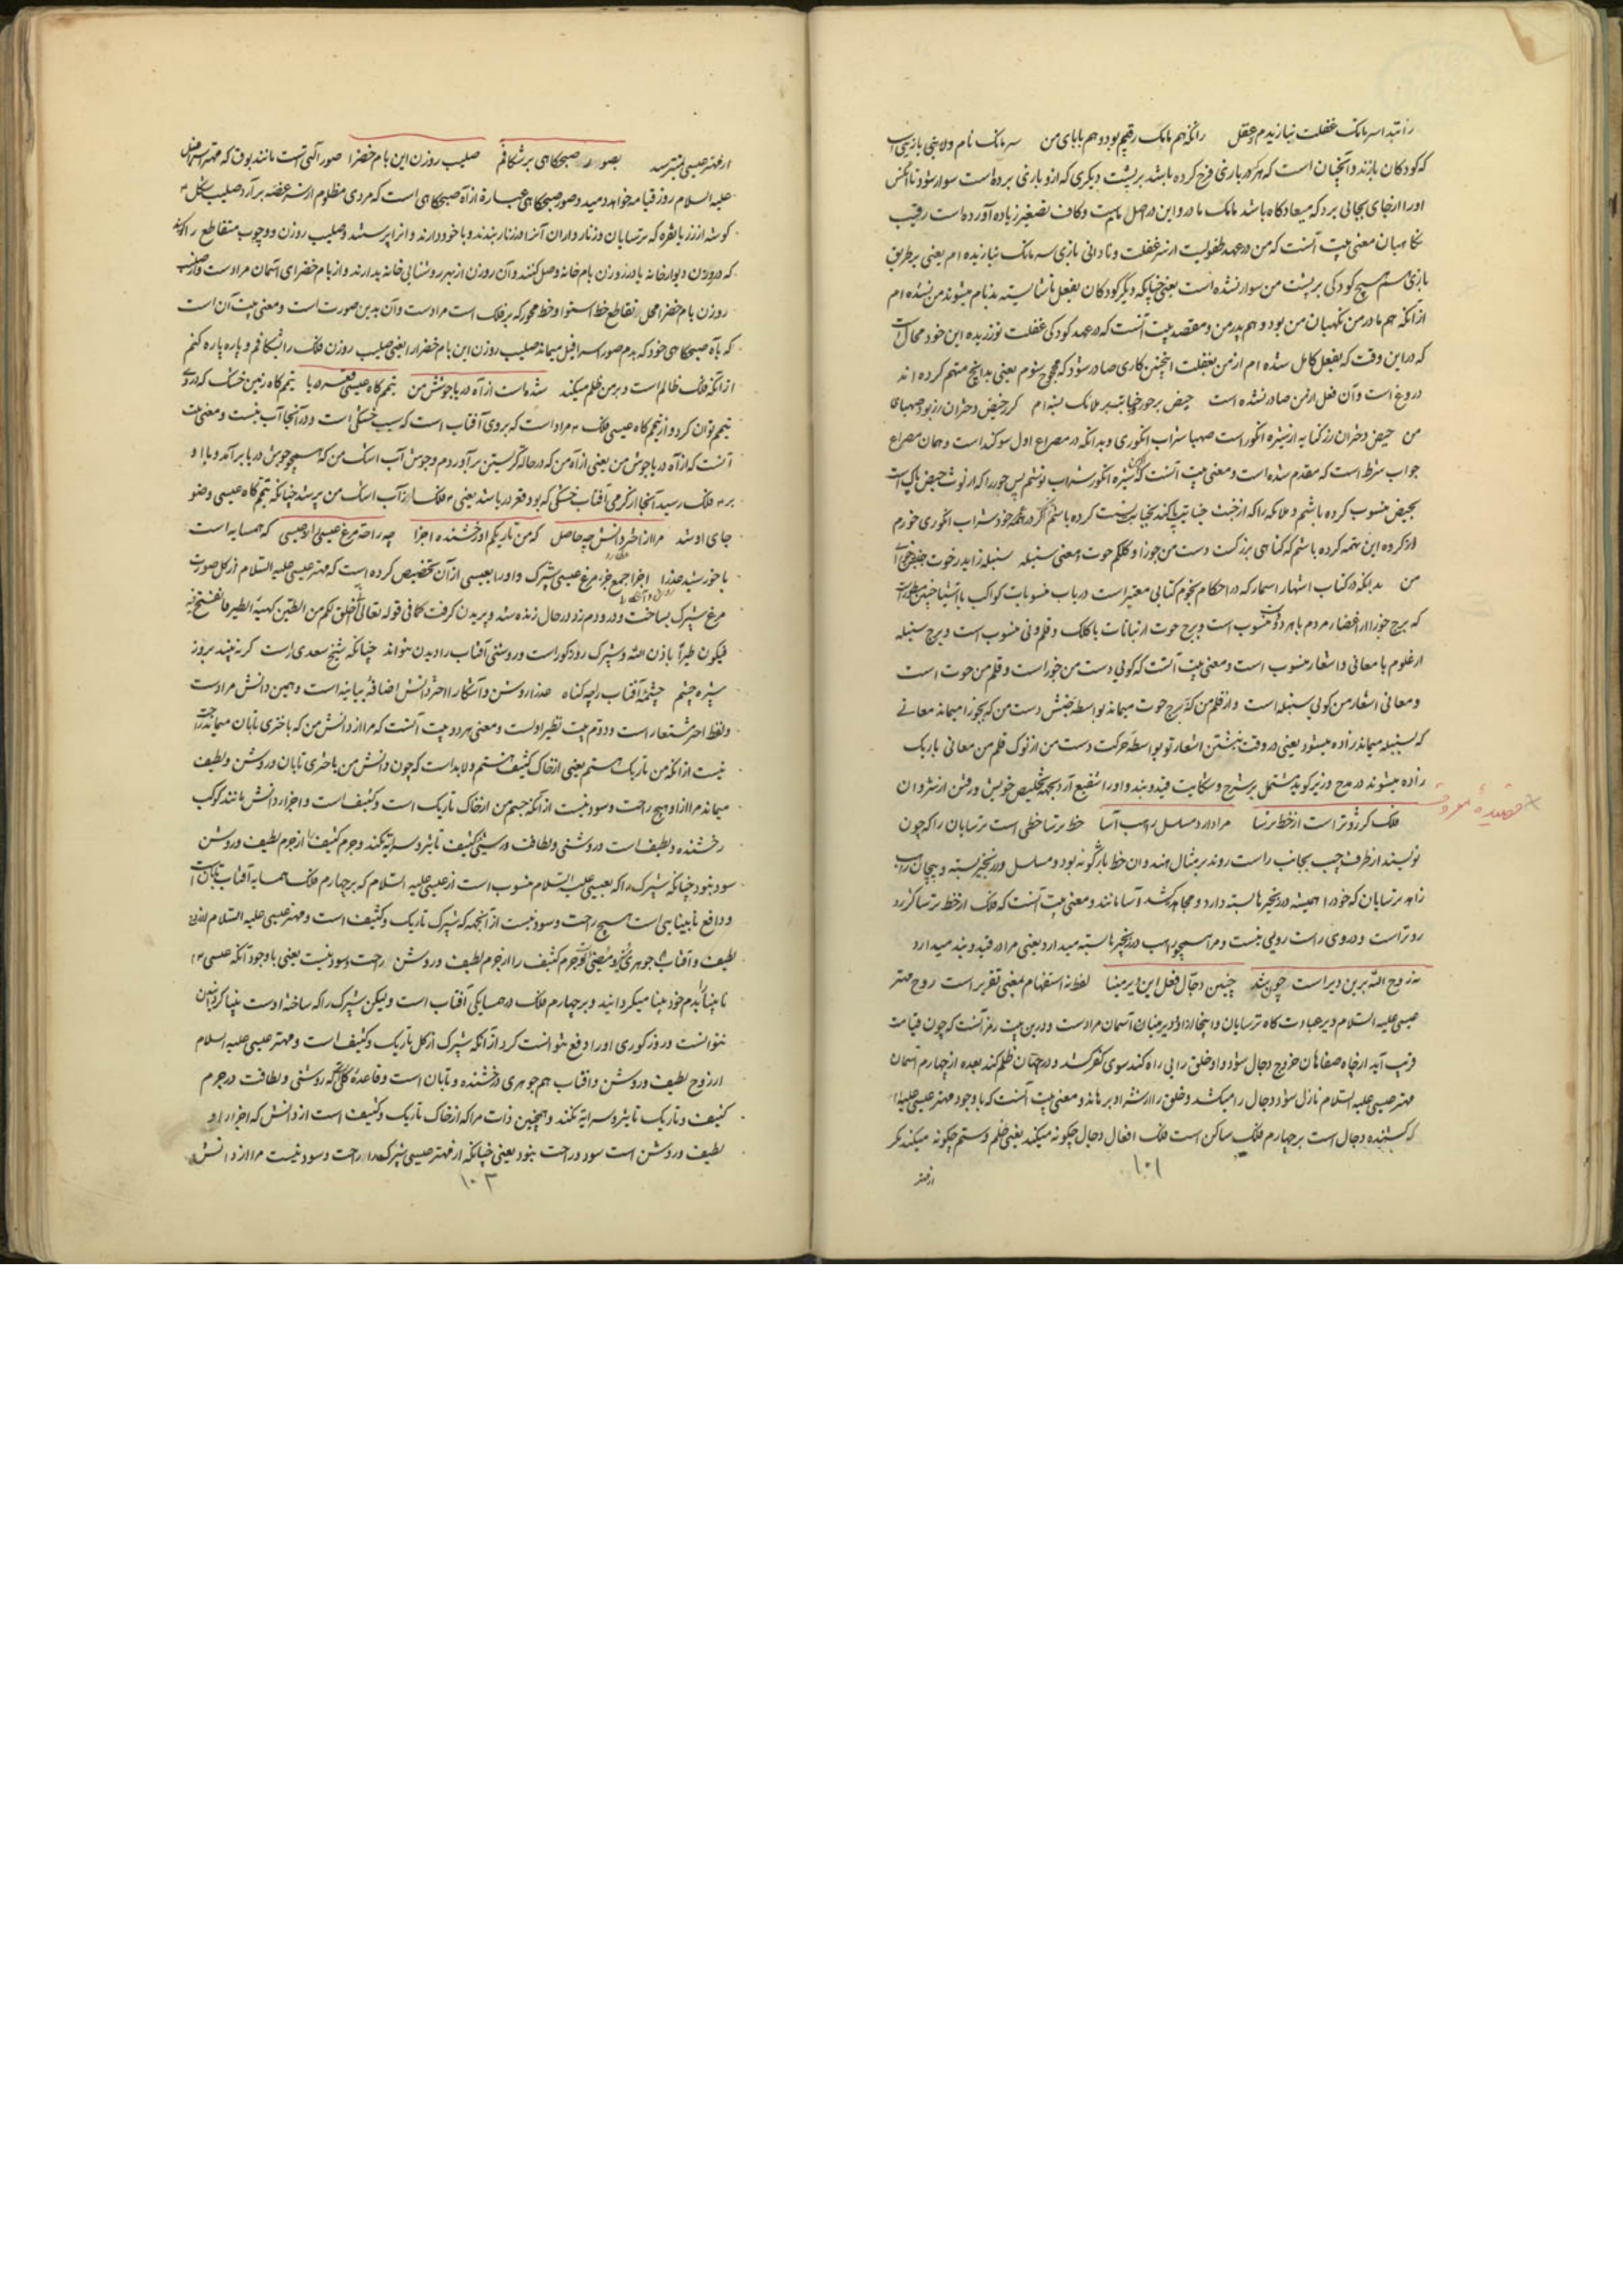 را بتدا سر مامک غفلت نبازیدم و عقل زانکه هم مامک رقیبم بود و هم بابای من سر مامک نام و لاینی بازیی است
که کودکان بازند و آنچنان است که هر که در بازی فرح کرده باشد بر پشت دیگری که ازو بازی برده است سوار شود تا آنکس
او را از جای بجائی برد که میعادگاه باشد مامک مادر و این در اصل مام است و کاف تصغیر زیاده آورده است رقیب
نگاهبان معنی بیت آنست که من در عهد طفولیت از سر غفلت و نادانی بازی سر مامک نبازیده ام یعنی بر طریق
بازی هم هیچ کودکی بر پشت من سوار نشده است یعنی چنانکه دیگر کودکان بفعل ناشایسته بدنام میشوند من نشده ام
از آنکه هم مادر من نگهبان من بود و هم پدر من و مقصد بیت آنست که در عهد کودکی غفلت نورزیده این خود محال است
که در این وقت که بفعل کامل شده ام از من بغفلت اینچنین کاری صادر شود که محجوج شوم یعنی بدانچ متهم کرده اند
دروغ است و آن فعل از من صادر نشده است حیض بر حور و جنابت بر ملائک بسته ام گر ز حیض دختران رز بود صهبای
من حیض دختران رز کنایه از شیره انگور است صهبا شراب انگوری و بدانکه در مصراع اول سوگند است و همان مصراع
جواب شرط است که مقدم شده است و معنی بیت آنست که شیره انگور شراب نوشم پس حور را که از لوث حیض پاک است
بحیض منسوب کرده باشم و ملائکه را که از خبث جنابت پاکند بجنابت نسبت کرده باشم اگر در همه عمر خود شراب انگوری خورم
از کرده این تهمه کرده باشم که گناهی بزرگ است دست من جوزا و کلکم حوت و معنی سنبله سنبله زاید ز حوت از جنبش جوزای
من بدانکه در کتاب اشهار اسمار که در احکام نجوم کتابی معتبر است در باب منسوبات کواکب با اشیا چنین مسطور است
که برج جوزا از اعضاء مردم با هر دو دست منسوب است و برج حوت از نباتات با کلک و قلم و نی منسوب است و برج سنبله
از علوم با معانی و اشعار منسوب است و معنی بیت آنست که گویی دست من جوزا است و قلم من حوت است
و معانی اشعار من گویی سنبله است و از قلم من که برج حوت میماند بواسطه جنبش دست من که بجوزا میماند معانی
که بسنبله میماند زاده میشود یعنی در وقت نبشتن اشعار تو بواسطه حرکت دست من از نوک قلم من معانی باریک
زاده میشوند در مدح و نیز گوید مشتمل بر شرح و شکایت قید و بند و او را شفیع آرد بجهة تخلیص خویش و رفتن از شروان
قصیدهٔ معروف
فلک کژروتر است از خط ترسا مرا دارد مسلسل راهب آسا خط ترسا خطی است ترسایان را که چون
نویسند از طرف چپ بجانب راست روند بر مثال هند و آن خط باژگونه بود و مسلسل در زنجیر بسته و پیچان راهب
زاهد ترسایان که خود را همیشه در زنجیرها بسته دارد و مجاهده کشد آسا مانند و معنی بیت آنست که فلک از خط ترسا کژرو
روتر است و در وی راست رویی نیست و مرا همچو راهب در زنجیرها بسته میدارد یعنی مرا در قید و بند میدارد
نه روح الله برین دیر است چون شد چنین دجال فعل این دیر مینا لفظ نه استفهام بمعنی تقریر است روح مهتر
عیسی علیه السلام دیر عبادت گاه ترسایان و اینجا از دیر مینا آسمان مراد است و در این بیت رمز آنست که چون قیامت
قریب آید از چاه صفاهان خروج دجال شود و او خلق را بی راه کند سوی کفر کشد و در جهان ظلم کند بعده از چهارم آسمان
مهتر عیسی علیه السلام نازل شود و دجال را میکشد و خلق را از شر او برهاند و معنی بیت آنست که با وجود مهتر عیسی علیه السلام
که کشنده دجال است بر چهارم فلک ساکن است فلک افعال دجال چگونه میکند یعنی ظلم و ستم چگونه میکند مگر
۱۰۱
از مهتر
از مهتر عیسی نمیترسد بصور صبحگاهی بر شکافم صلیب روزن این بام خضرا صور آلتی است مانند بوق که مهتر اسرافیل
علیه السلام روز قیامه خواهد دمید و صور صبحگاهی عبارة از آه صبحگاهی است که مردی مظلوم از سر غصه بر آرد صلیب شکل
گوشه از زر یا نقره که ترسایان و زنار داران آنرا در زنار بندند و با خود دارند و آنرا پرستند و صلیب روزن دو چوب متقاطع را گویند
که در روزن دیوار خانه یا در روزن بام خانه وصل کنند و آن روزن از بهر روشنایی خانه بدارند و از بام خضرای آسمان مراد است و از صلیب
روزن بام خضرا محل تقاطع خط استوا و خط محور که بر فلک است مراد است و آن بدین صورت است و معنی بیت آن است
که بآه صبحگاهی خود که بدم صور اسرافیل میماند صلیب روزن این بام خضرا را یعنی صلیب روزن فلک را بشکافم و پاره پاره کنم
از آنکه فلک ظالم است و بر من ظلم میکند شده است از آه دریا جوشش من تیمم گاه عیسی قعر دریا تیمم گاه زمین خشک که در وی
تیمم توان کرد و از تیمم گاه عیسی فلک ۴ مراد است که بروی آفتاب است که سبب خشکی است و در آنجا آب نیست و معنی بیت
آنست که از آه دریا جوش من یعنی از آه من که در حاله گریستن بر آوردم و جوش آب اشک من که همچو جوش دریا بر آمد و بالا و
بر ۴ فلک رسید آنجا از گرمی آفتاب خشکی که بود قعر دریا شد یعنی ۴ فلک از آب اشک من پر شد چنانکه تیمم گاه عیسی وضو
جای او شد مرا از اختر دانش چه حاصل که من تاریکم او رخشنده اجزا چه راحة مرغ عیسی را ز عیسی که همسایه است
با خورشید عذرا اجزا جمع جزء مرغ عیسی شپرک و او را بعیسی از آن تخصیص کرده است که مهتر عیسی علیه السلام از گل صورت
مرغ شپرک بساخت و درو دم زد در حال زنده شد و پریدن گرفت کما فی قوله تعالی انی اخلق لکم من الطین کهیئة الطیر فانفخ فیه
فیکون طیرا باذن الله و شپرک روز کور است و روشنی آفتاب را دیدن نتواند چنانکه شیخ سعدی راست گر نبیند بروز
شپره چشم چشمهٔ آفتاب را چه گناه عذرا روشن و آشکارا اختر دانش اضافة بیانیه است و همین دانش مراد است
و لفظ اختر مستعار است و دوم بیت نظیر اولست و معنی هر دو بیت آنست که مرا از دانش من که باختری تابان میماند راحت
نیست از آنکه من تاریک هستم یعنی از خاک کثیف هستم و لا بد است که چون دانش من باختری تابان و روشن و لطیف
میماند مرا ازو هیچ راحت و سود نیست از آنکه جسم من از خاک تاریک است و کثیف است و اجزاء دانش مانند کوکب
رخشنده و لطیف است و روشنی و لطافت در شیئی کثیف تاثیر و سرایه نکند و جرم کثیف را از جرم لطیف و روشن
سود نبود چنانکه شپرک را که بعیسی علیه السلام منسوب است از عیسی علیه السلام که بر چهارم فلک همسایه آفتاب تابان است
و دافع نابینایی است هیچ راحت و سود نیست از آنجهة که شپرک تاریک و کثیف است و مهتر عیسی علیه السلام از روح
لطیف و آفتاب جوهری نیر و مضئی است و جرم کثیف را از جرم لطیف و روشن راحت و سود نیست یعنی با وجود آنکه عیسی ع
نابینا را بدم خود بینا میگردانید و بر چهارم فلک در همسایگی آفتاب است ولیکن شپرک را که ساخته اوست بینا کردانیدن
نتوانست و روز کوری او را دفع نتوانست کرد از آنکه شپرک از گل تاریک و کثیف است و مهتر عیسی علیه السلام
از روح لطیف و روشن و آفتاب هم جوهری درخشنده و تابان است و قاعدهٔ کلی است که روشنی و لطافت در جرم
کثیف و تاریک تاثیر و سرایة نکند و همچنین ذات مرا که از خاک تاریک و کثیف است از دانش که اجزاء او
لطیف و روشن است سود و راحت نبود یعنی چنانکه از مهتر عیسی شپرک را راحت و سود نیست مرا از دانش
۱۰۲